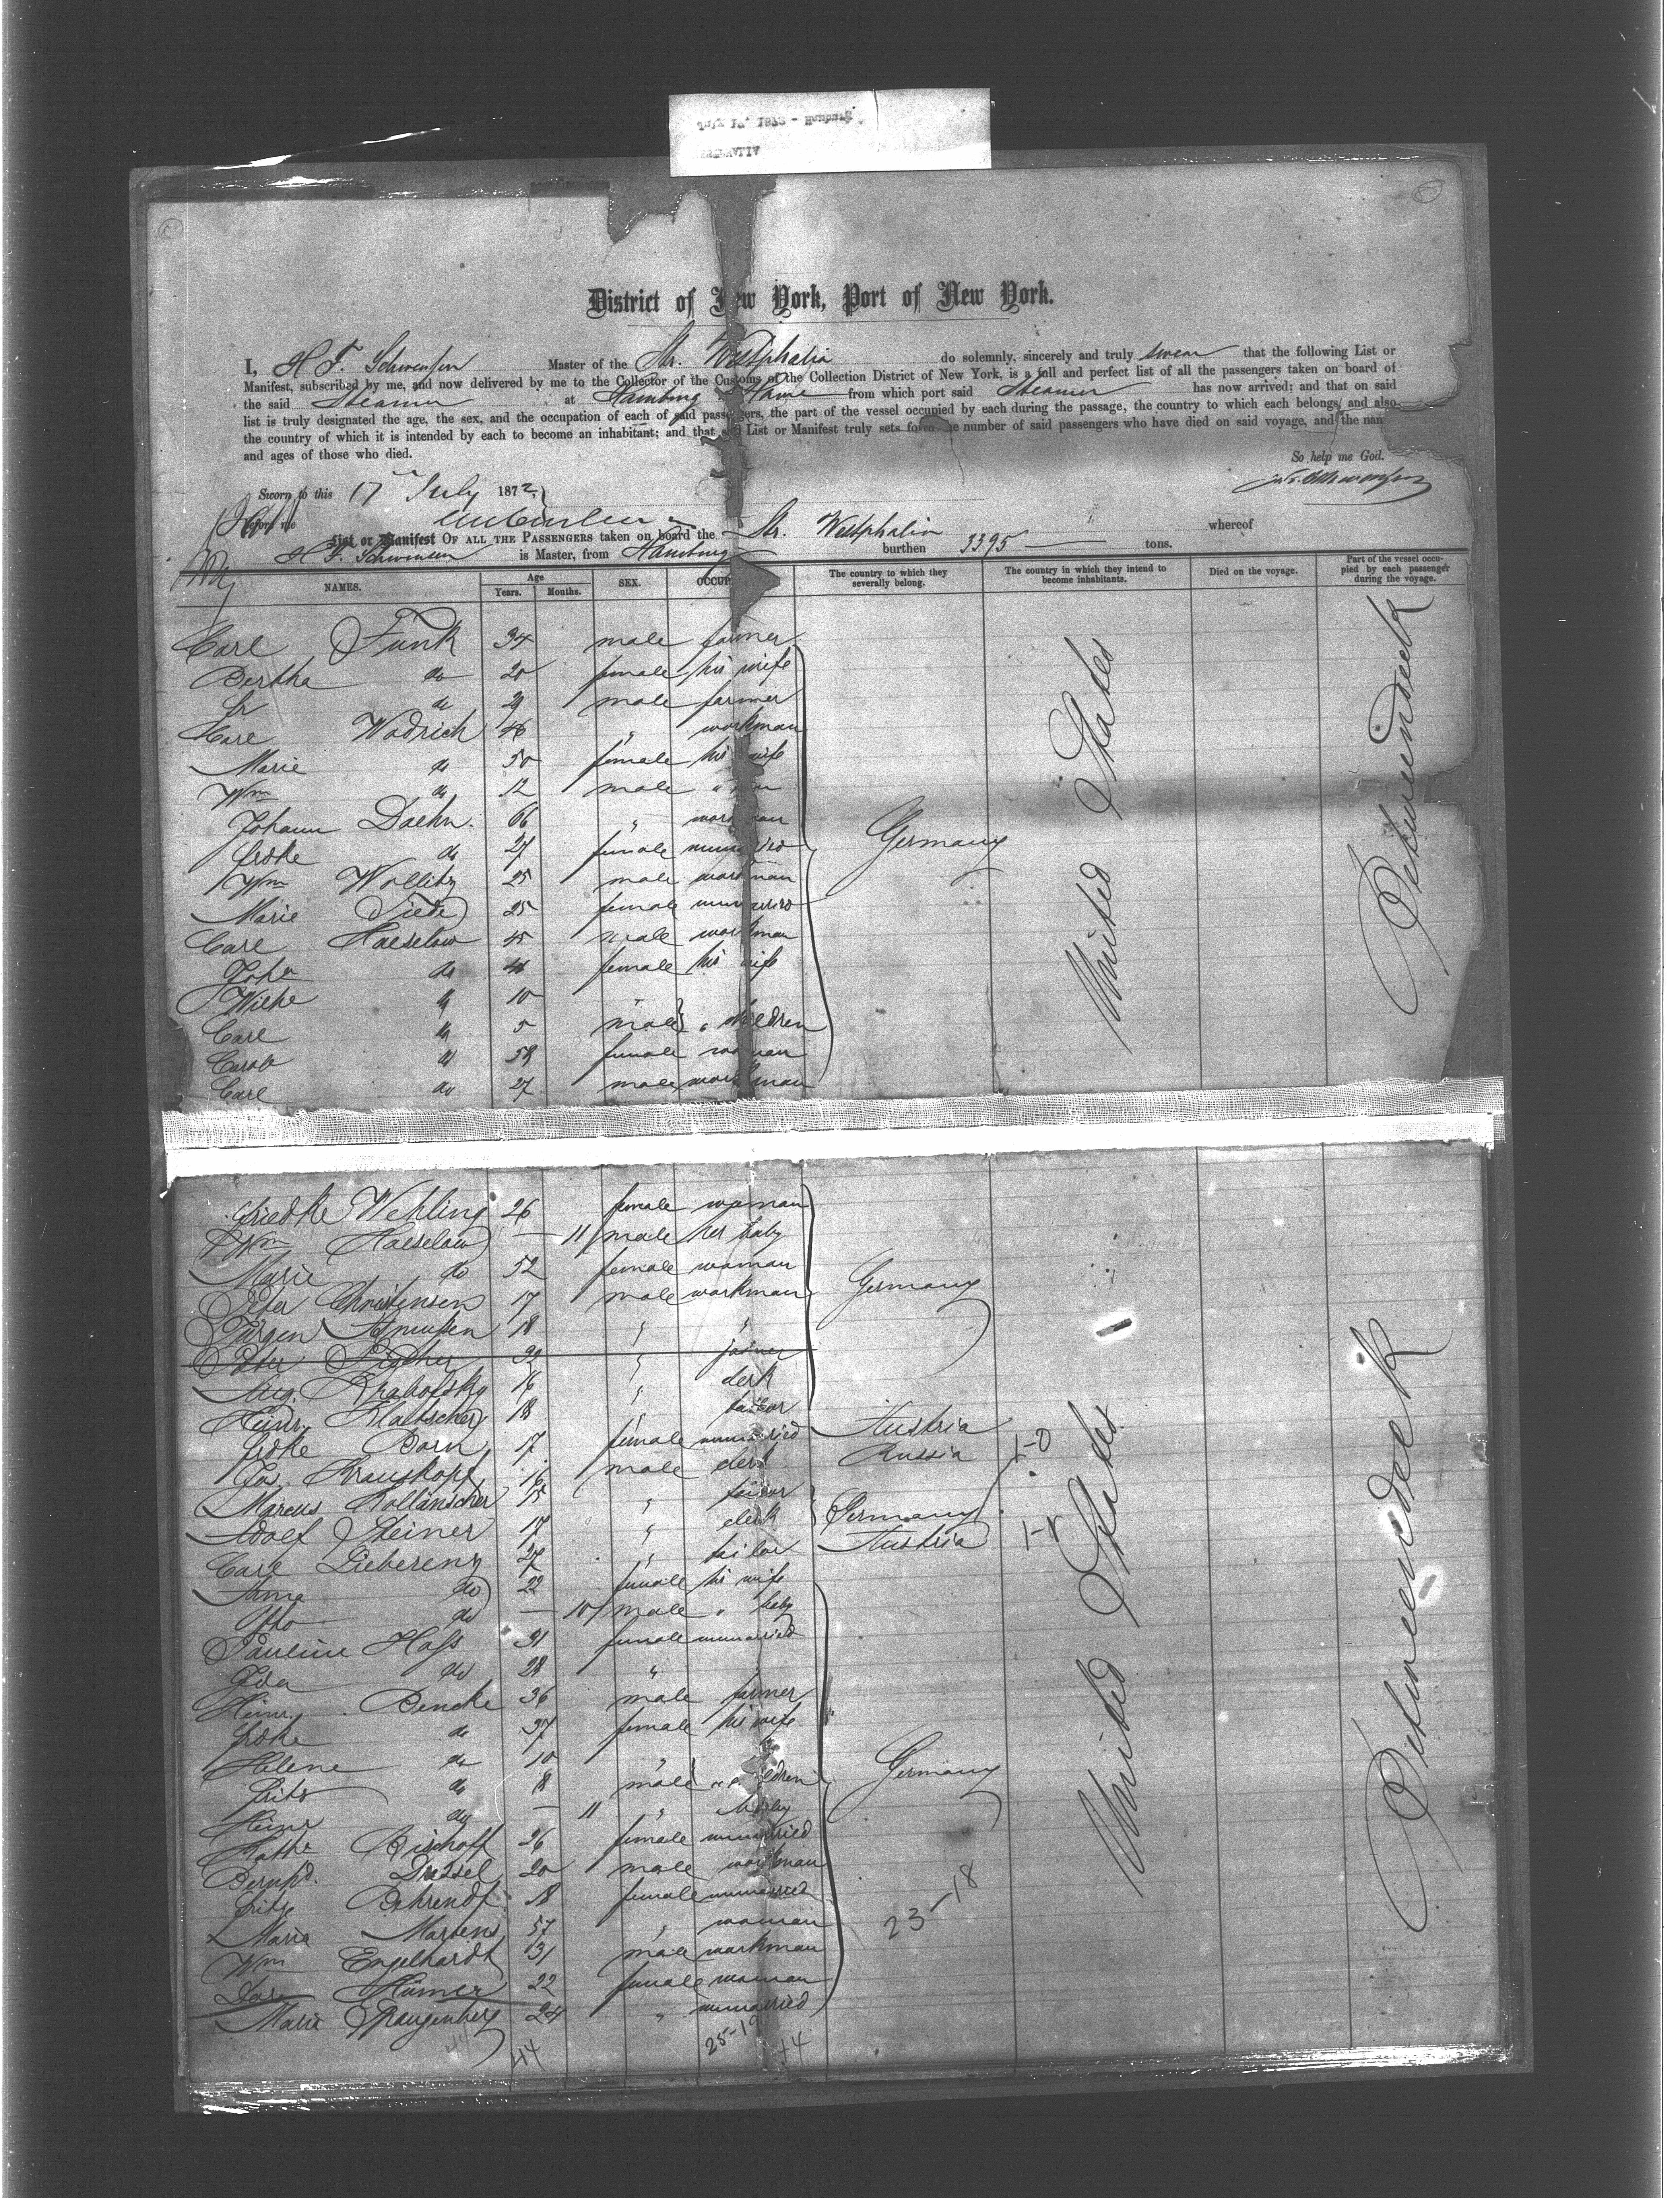 District of New York, Port of New York.
I, H. F. Schwensen Master of the Str. Westphalia do solemnly, sincerely and truly swear that the following List or
Manifest, subscribed by me, and now delivered by me to the Collector of the Customs of the Collection District of New York, is a full and perfect list of all the passengers taken on board of
the said Steamer at Hamburg Havre from which port said Steamer has now arrived; and that on said
list is truly designated the age, the sex, and the occupation of each of said passengers, the part of the vessel occupied by each during the passage, the country to which each belongs, and also
the country of which it is intended by each to become an inhabitant; and that said List or Manifest truly sets forth the number of said passengers who have died on said voyage, and the nam
and ages of those who died.
So help me God.
Sworn to this 17 July 1872
Before me
List or Manifest OF ALL THE PASSENGERS taken on board the Str. Westphalia whereof
H. F. Schwensen is Master, from Hamburg burthen 3395 tons.
NAMES. Age Years. Months. SEX. OCCUP The country to which they severally belong. The country in which they intend to become inhabitants. Died on the voyage. Part of the vessel occupied by each passenger during the voyage.
Carl Funk 34 male farmer
Bertha do 20 female his wife
Fr do 29 male farmer
Carl Wodrich 46 " workman
Marie do 50 female his wife
Wm do 12 male " son
Johann Daehn. 66 " workman
Frdke do 27 female unmarried
Wm Wollitz 25 male workman
Marie Tiede 25 female unmarried
Carl Haeselow 45 male workman
do female his wife
Wilhe do 10 "
Carl do 5 male " children
Carole do 58 female woman
Carl do 27 male workman
Germany
United States
Friedke Wehling 26 female woman
Wm Haeselow — 11 male her baby
Marie do 52 female woman
Peter Christensen 17 male workman
Jürgen Asmussen 18 " "
Peter 32 " joiner
Aug. 16 " clerk
Heinr. Klaetscher 18 " tailor
Frdke Born 17 female unmarried
Krauskopf 16 male clerk
Marcus 15 " tailor
Adolf Steiner 17 " clerk
Carl Lieberenz 27 " tailor
Anna do 22 female his wife
Otto do — 10 male " baby
Pauline Hass 31 female unmarried
Ida do 28 "
Heinr. Bencke 36 male farmer
Frdke do 37 female his wife
Helene do 10 "
Fritz do 8 male " children
Heinr do — 11 " baby
Kathe Bischoff 26 female unmarried
Bernhd. Dressel 20 male workman
Fritze Behrendt 18 female unmarried
Maria Martens 57 " woman
Wm Engelhardt 31 male workman
Dora 22 female woman
Marie Spangenberg 24 " unmarried
Germany
Austria
Russia
Germany
Austria
Germany
United States
44
25-19
44
23-18